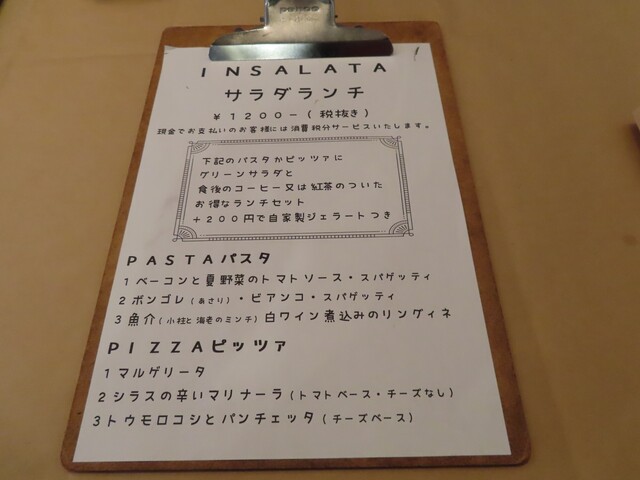 penco
INSALATA
サラダランチ
￥1200-(税抜き)
現金でお支払いのお客様には消費税分サービスいたします。
下記のパスタかピッツァに
グリーンサラダと
食後のコーヒー又は紅茶のついた
お得なランチセット
+200円で自家製ジェラートつき
PASTAパスタ
1ベーコンと夏野菜のトマトソース・スパゲッティ
2ボンゴレ(あさり)・ビアンコ・スパゲッティ
3魚介(小柱と海老のミンチ)白ワイン煮込みのリングィネ
PIZZAピッツァ
1マルゲリータ
2シラスの辛いマリナーラ(トマトベース・チーズなし)
3トウモロコシとパンチェッタ(チーズベース)